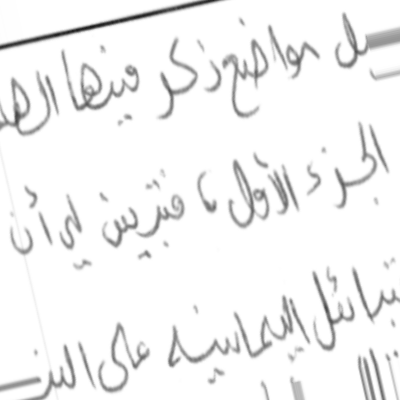 بل مواضع ذكر فيها اله
الجزء الأول، فتبين لي أن
قبائل اليمانية على الين